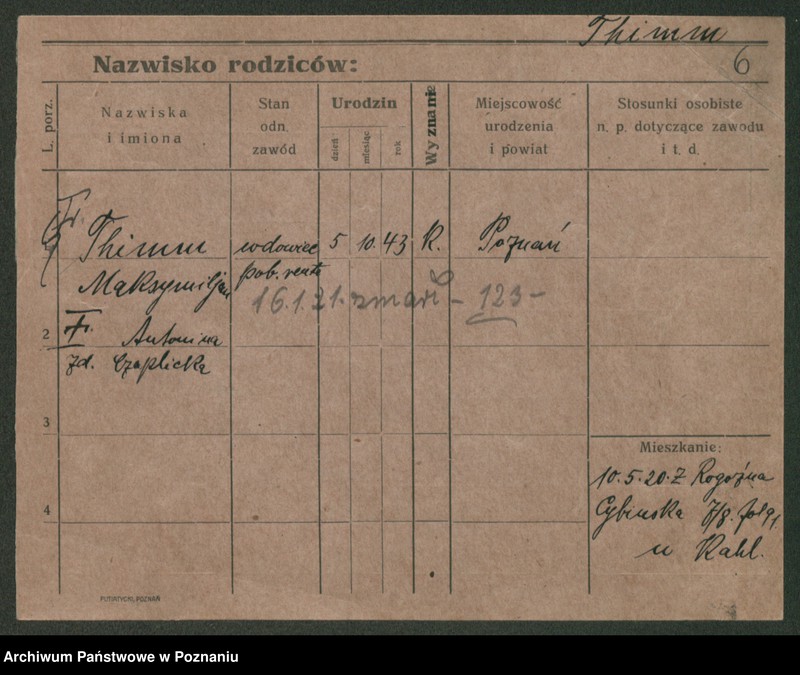 Thimm
6
Nazwisko rodziców:
L. porz.
Nazwiska
i imiona
Stan
odn.
zawód
Urodzin
dzień
miesiąc
rok
Wyznanie
Miejscowość
urodzenia
i powiat
Stosunki osobiste
n. p. dotyczące zawodu
i t. d.
Thimm wdowiec 5 10. 43 K. Poznań
Maksymiljan pob. rentę
16.1.21. zmarł - 123 -
2 Antonina
zd. Czaplicka
3
Mieszkanie:
10.5.20. Z Rogoźna
4
Cybińska 7/8.
u Kahl.
PUTIATYCKI, POZNAŃ
Archiwum Państwowe w Poznaniu